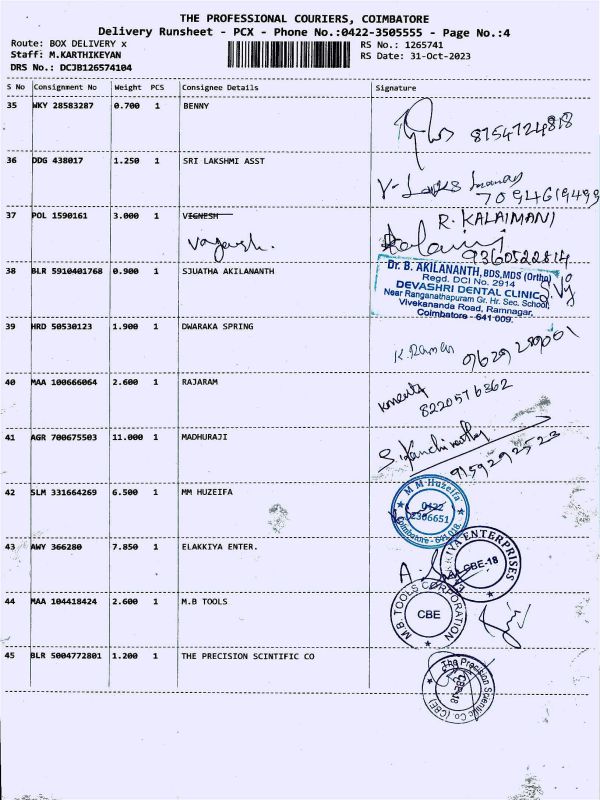 THE PROFESSIONAL COURIERS, COIMBATORE
Delivery Runsheet - PCX - Phone No.:0422-3505555 - Page No.:4
Route: BOX DELIVERY x
RS No.: 1265741
Staff: M.KARTHIKEYAN
RS Date: 31-Oct-2023
DRS No.: DCJB126574104
S No Consignment No Weight PCS Consignee Details Signature
35 WKY 28583287 0.700 1 BENNY
8754724818
36 DDG 438017 1.250 1 SRI LAKSHMI ASST
7094619499
37 POL 1590161 3.000 1 VIGNESH
R. KALAIMANI
9360522814
38 BLR 5910401768 0.900 1 SJUATHA AKILANANTH
Dr. B. AKILANANTH, BDS,MDS (Ortho)
Regd. DCI No. 2914
DEVASHRI DENTAL CLINIC
Near Ranganathapuram Gr. Hr. Sec. School,
Vivekananda Road, Ramnagar,
Coimbatore - 641 009.
39 HRD 50530123 1.900 1 DWARAKA SPRING
K. Raman
40 MAA 100666064 2.600 1 RAJARAM
8220576362
41 AGR 700675503 11.000 1 MADHURAJI
9159292523
42 SLM 331664269 6.500 1 MM HUZEIFA
M M Huzeifa
0422
2306651
Coimbatore - 641 018.
43 AWY 366280 7.850 1 ELAKKIYA ENTER.
KIYA ENTERPRISES
CBE-18
44 MAA 104418424 2.600 1 M.B TOOLS
M.B. TOOLS CORPORATION
CBE
45 BLR 5004772801 1.200 1 THE PRECISION SCINTIFIC CO
The Precision Scientific Co (CBE)
CBE-18